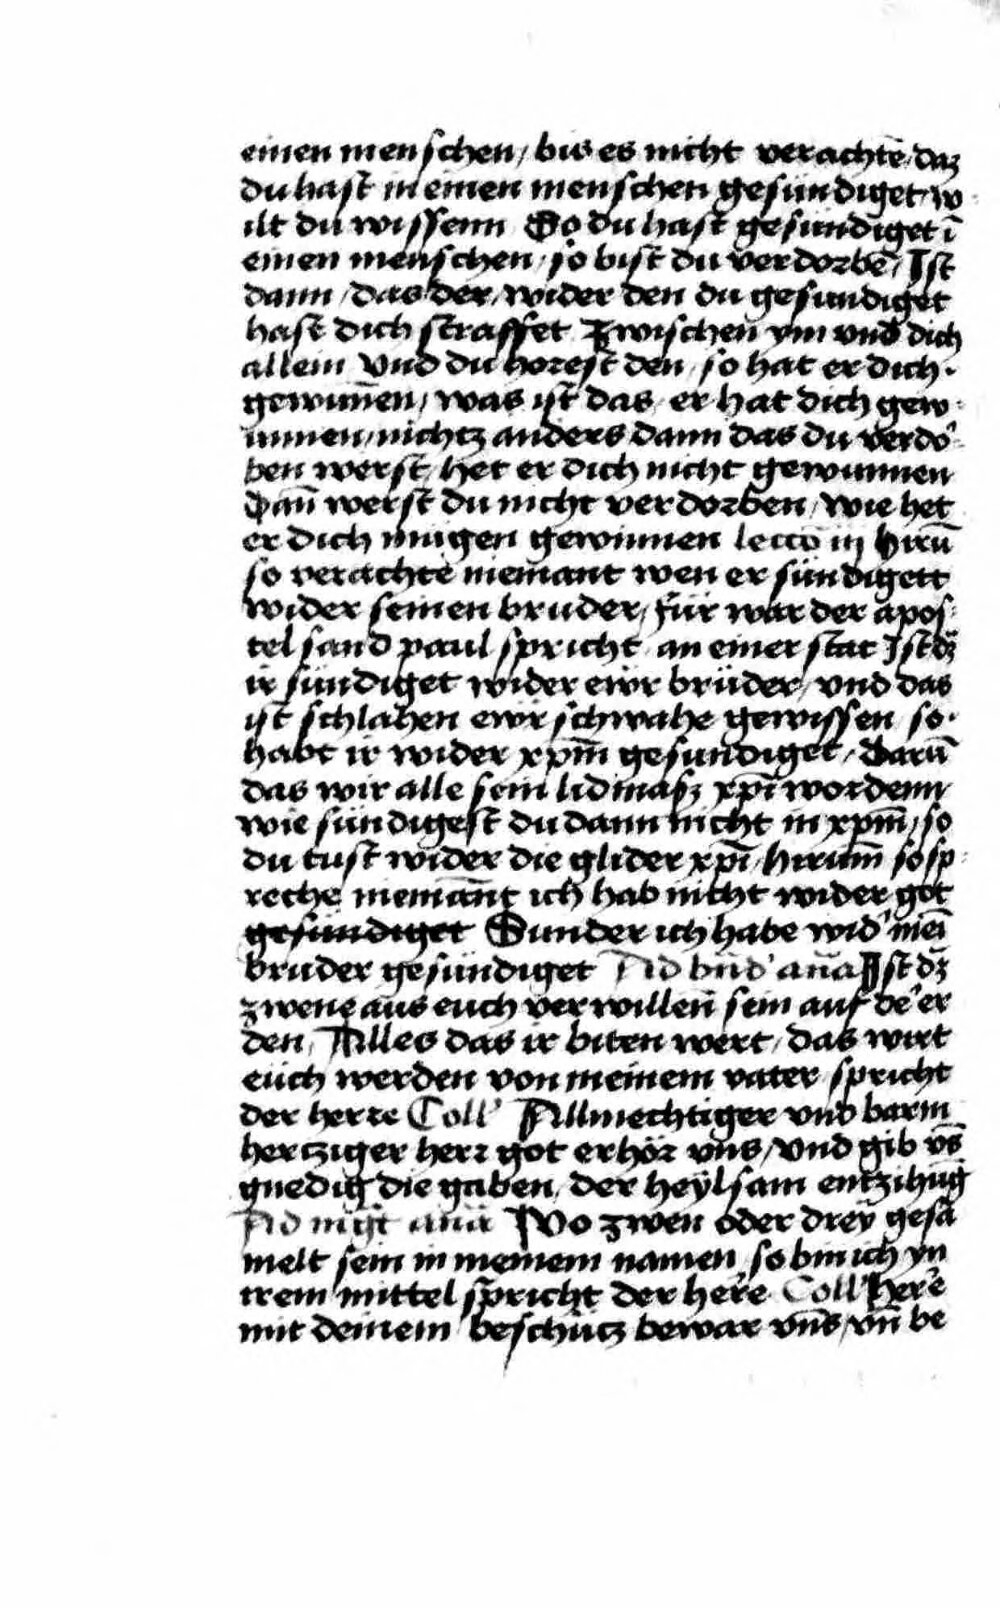 einen menschen / bis es nicht verachtē / daz
du hast in einen menschen gesündiget / w
ilt du wissenn So du hast gesündiget ī
einen menschen / so bist du verdorbē / Ist
dann / das der / wider den du gesundiget
hast dich straffet Zwischen ym vnd dich
allein Vnd du horest den / so hat er dich
gewunnē / was ist das / er hat dich gew
unnen / nichtz anders dann das du verdo'
ben werst / het er dich nicht gewunnen
Dañ werst du nicht verdorben / wie het
er dich mügen gewinnen lectō iij hirū
so verachte niemant wen er sündigett
wider seinen bruder / für war der apos
tel sand paul spricht / an einer stat Ist dz
ir sündiget wider ewr brüder / vnd das
ist schlahen ewr schwahe gewissen / so
habt ir wider xp̄m gesundiget / Darū
das wir alle sein lidmasz xp̄i wordenn
wie sündigest du dann nicht in xp̄m / so
du tust wider die glider xp̄i / hirum̄ so sp
reche niemant ich hab nicht wider got
gesündiget Sunder ich habe wid' mei
bruder gesündiget Ad bn̄d' an̄a Ist dz
zwene aus euch verwillen sein auf de' er
den / Alles das ir biten wert / das wirt
euch werden von meinem vater / spricht
der herre Coll' Allmechtiger vnd barm
hertziger herr got erhör vns / vnd gib vn̄s
gnedig die gaben / der heylsam entzihūg
Ad mgt an̄a Wo zwen oder drey gesā
melt sein in meinem namen / so bin ich yn
irem mittel spricht der here Coll' Here
mit deinem beschutz bewar vn̄s / vn̄ be